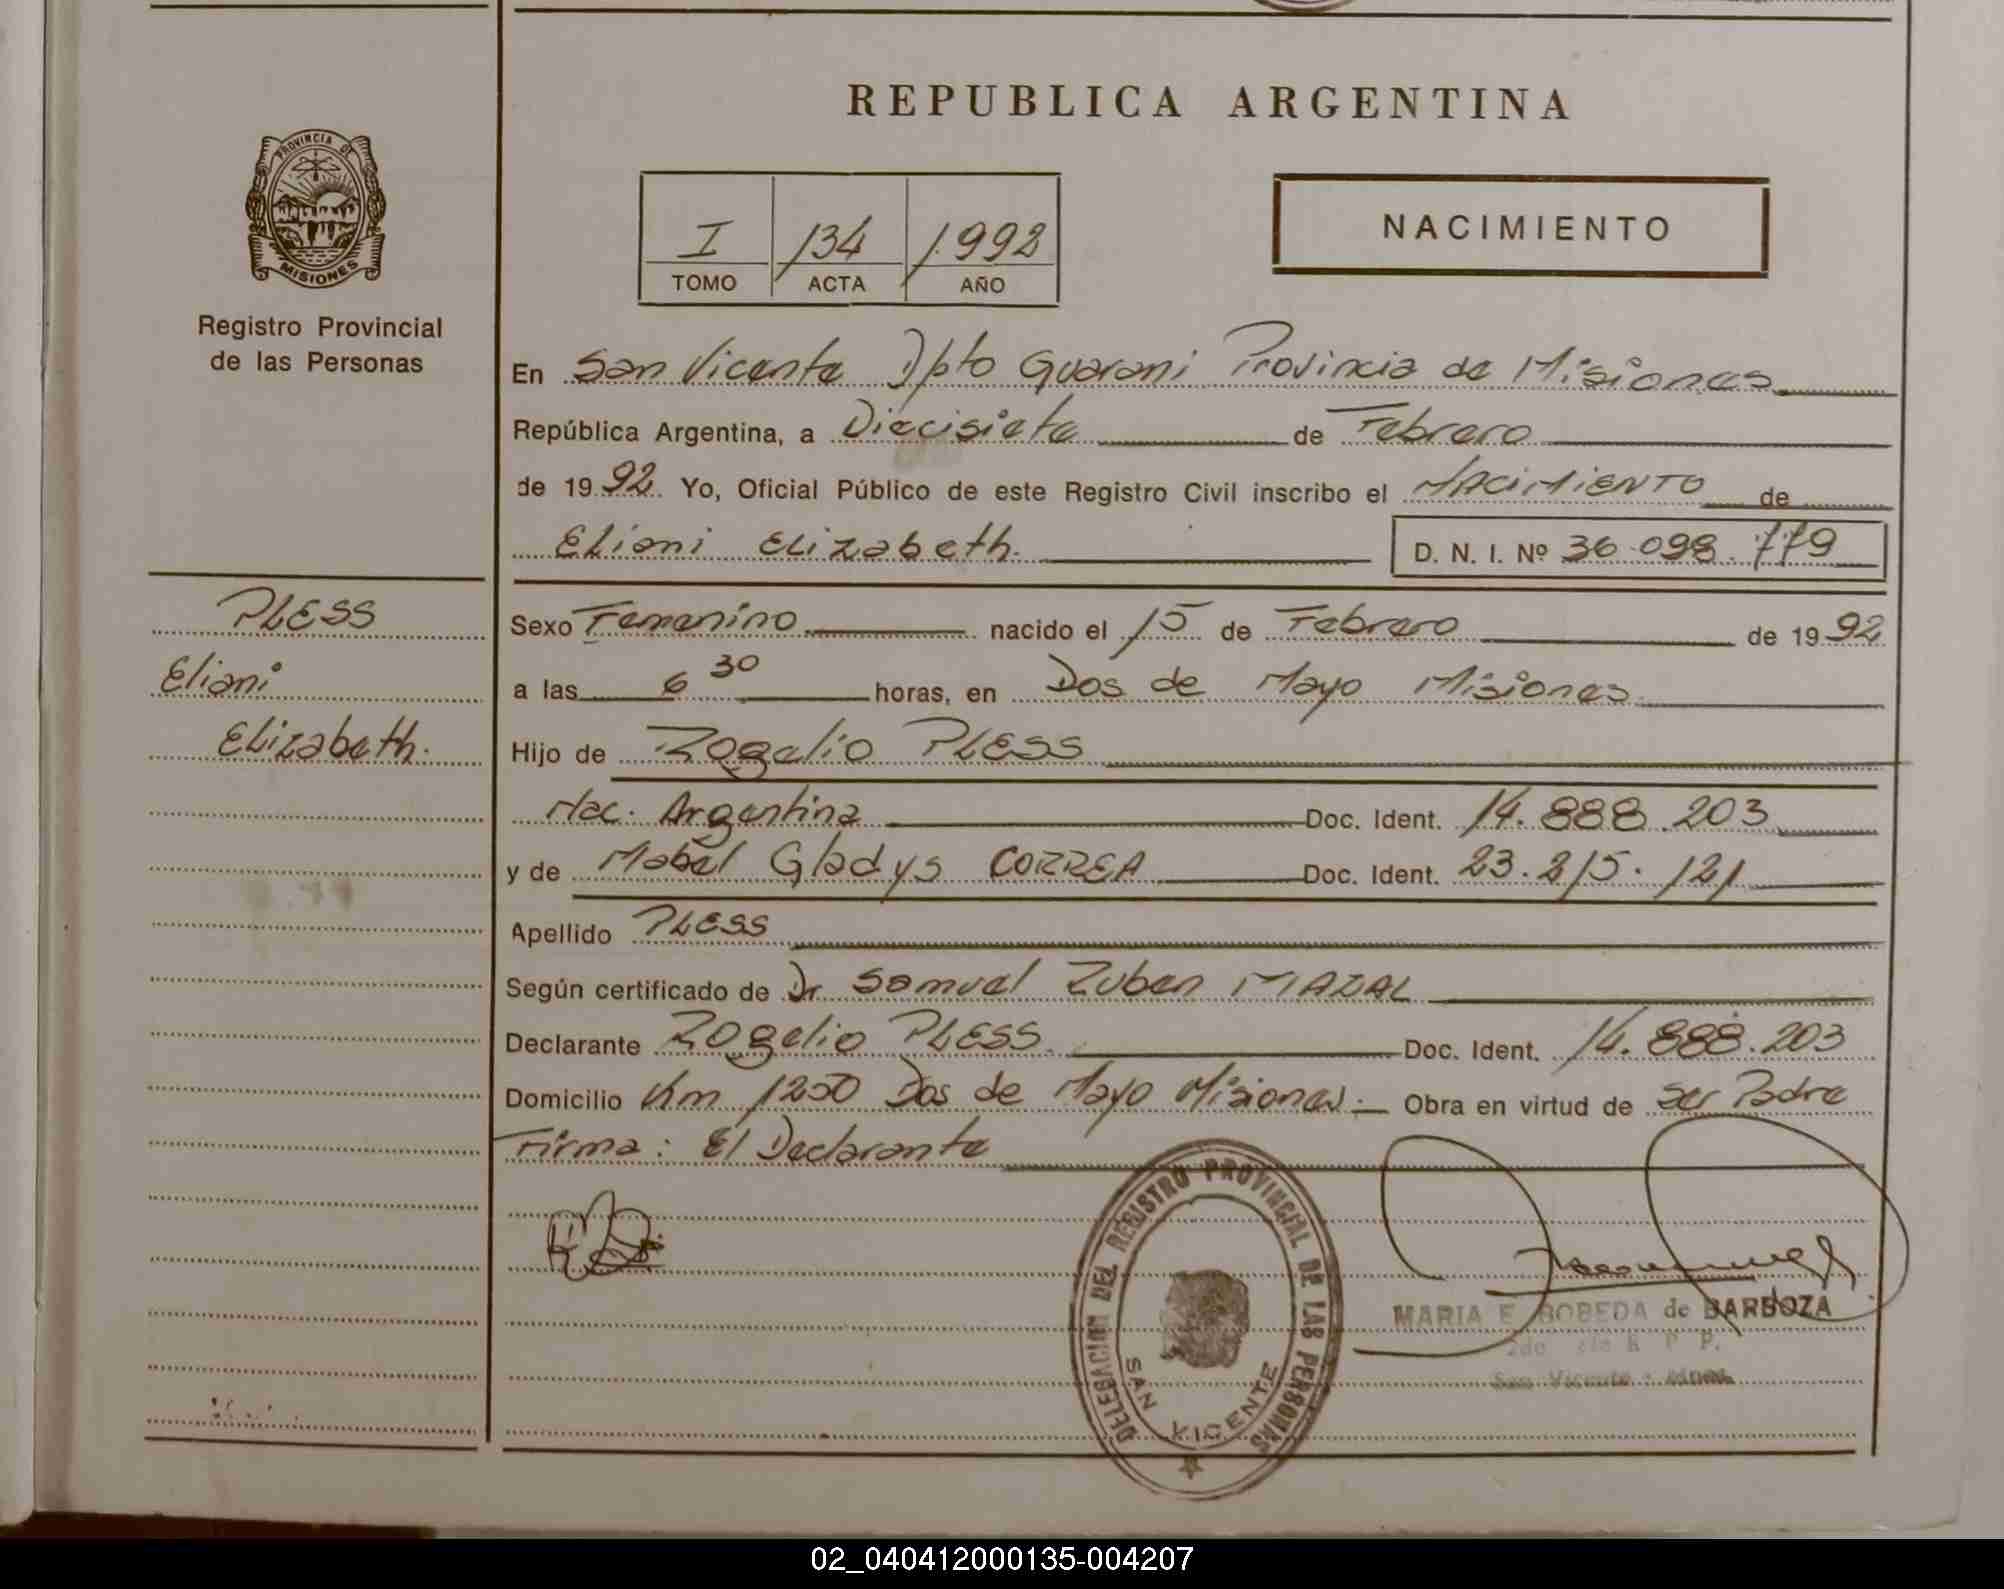 REPUBLICA ARGENTINA
PROVINCIA DE
MISIONES
Registro Provincial
de las Personas
I 134 1.992
TOMO ACTA AÑO
NACIMIENTO
En San Vicente Dpto Guarani Provincia de Misiones
República Argentina, a Diecisiete de Febrero
de 19 92. Yo, Oficial Público de este Registro Civil inscribo el NACIMIENTO de
Eliani Elizabeth. D. N. I. Nº 36.098.779
PLESS
Eliani
Elizabeth.
Sexo Femenino nacido el 15 de Febrero de 19 92
a las 6 30 horas, en Dos de Mayo Misiones.
Hijo de Rogelio PLESS
Nac. Argentina Doc. Ident. 14.888.203
y de Mabel Gladys CORREA Doc. Ident. 23.215.121
Apellido PLESS
Según certificado de Dr Samuel Ruben MAZAL
Declarante Rogelio PLESS. Doc. Ident. 14.888.203
Domicilio Km 1250 Dos de Mayo Misiones.- Obra en virtud de ser Padre
Firma: El Declarante
DELEGACION DEL REGISTRO PROVINCIAL DE LAS PERSONAS
SAN VICENTE
MARIA E. BOBEDA de BARBOZA
San Vicente - Mnes.
02_040412000135-004207